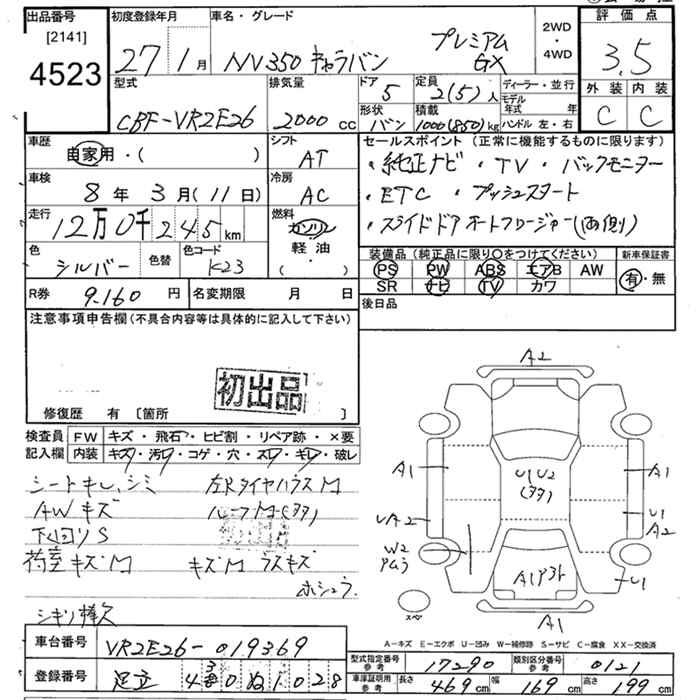 出品番号 初度登録年月 車名・グレード 2WD・4WD 評価点
[2141]
4523 27年1月 NV350 キャラバン プレミアム GX 3.5
型式 排気量 ドア 定員 ディーラー・並行 外装 内装
5 2(5)人 モデル年式 年 C C
CBF-VR2E26 2000cc 形状 積載
バン 1000(850)kg ハンドル 左・右
車歴 自家用・( ) シフト AT
セールスポイント (正常に機能するものに限ります)
・純正ナビ ・TV ・バックモニター
車検 8年3月(11日) 冷房 AC
・ETC ・プッシュスタート
走行 12万0千245km 燃料 ガソリン 軽油 ( )
・スライドドアオートクロージャー(両側)
色 シルバー 色替 色コード K23
装備品 (純正品に限り○をつけてください) 新車保証書
PS PW ABS エアB AW 有・無
SR ナビ TV カワ
R券 9,160円 名変期限 月 日
後日品
注意事項申告欄(不具合内容等は具体的に記入して下さい)
初出品
修復歴 有 [箇所 ]
検査員記入欄 FW キズ・飛石・ヒビ割・リペア跡・×要
内装 キズ・汚れ・コゲ・穴・スレ・キレ・破レ
シートキレ、シミ 左Rタイヤハウス M
AWキズ ルーフM(多)
下回りS
荷室キズM キズM ラスキズ
ホシュウ
A2
A1
U1U2
(多)
A1
UA2
U1
A2
W2
PMう
U1
スペア
A1
A-キズ E-エクボ U-凹み W-補修跡 S-サビ C-腐食 XX-交換済
車台番号 VR2E26-019369
型式指定番号 参考 17290 類別区分番号 参考 0121
登録番号 足立 1028
車庫証明用 参考 長さ 469cm 幅 169cm 高さ 199cm